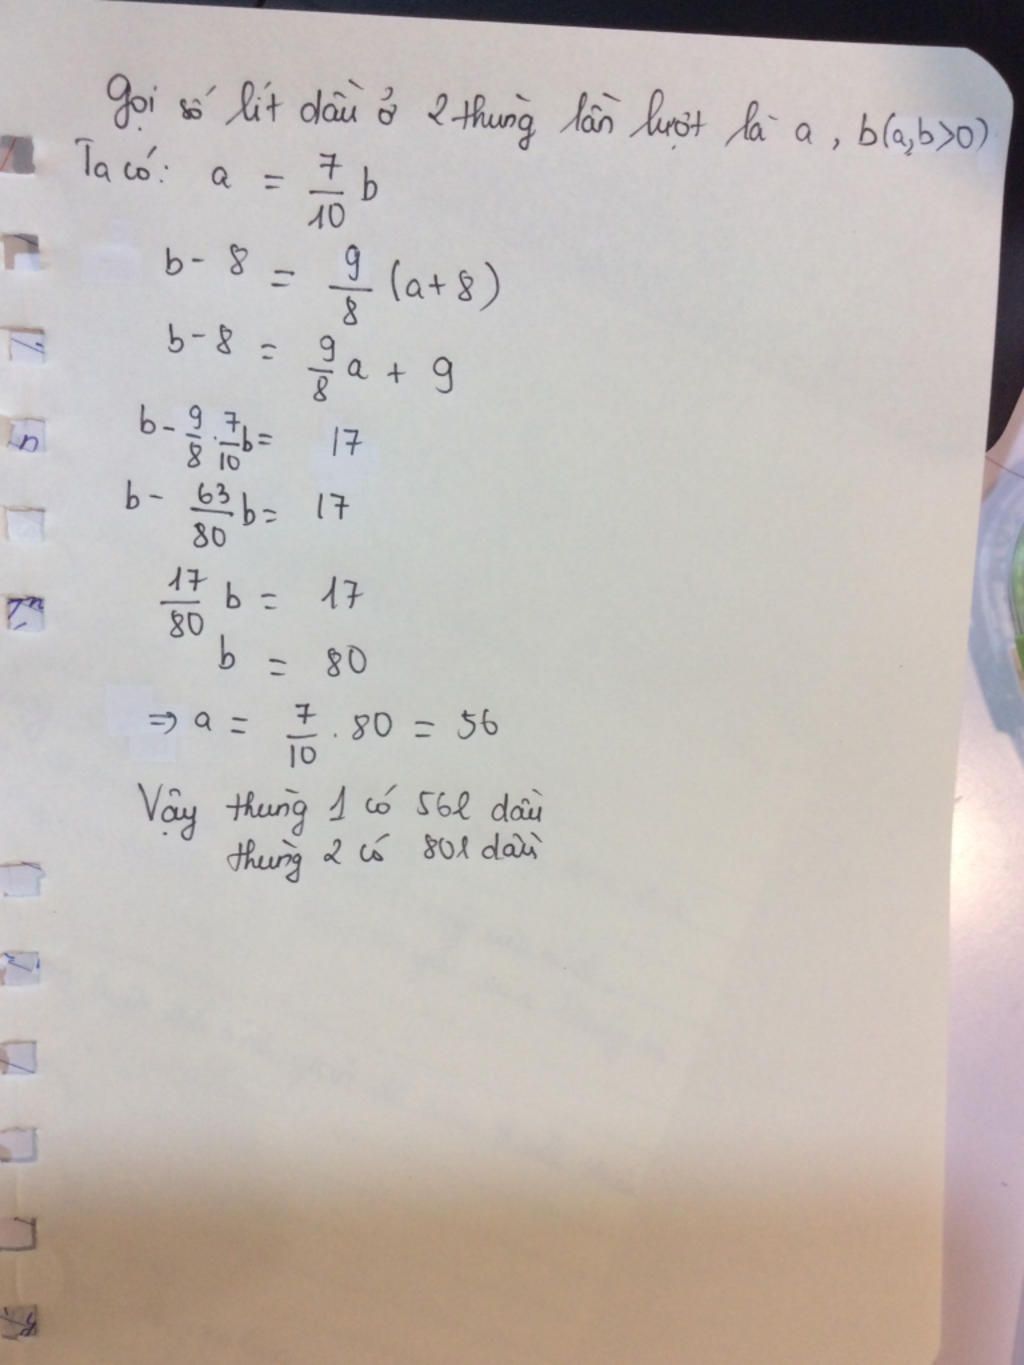 Gọi số lít dầu ở 2 thùng lần lượt là a, b(a,b>0)
Ta có: a = 7/10 b
b - 8 = 9/8 (a+8)
b - 8 = 9/8 a + 9
b - 9/8 . 7/10 b = 17
b - 63/80 b = 17
17/80 b = 17
b = 80
⇒ a = 7/10 . 80 = 56
Vậy thùng 1 có 56l dầu
thùng 2 có 80l dầu